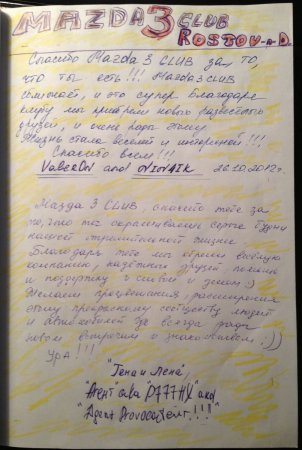 MAZDA 3 CLUB
ROSTOV-n-D.
Спасибо Mazda 3 CLUB за то,
что ты есть!!! Mazda 3 CLUB
сближает, и это супер. Благодаря
клубу мы приобрели новых
друзей, и очень рады этому
Жизнь стала веселей и интересней!!!
Спасибо всем!!!
ValeKON and NINA1K 26.10.2012г.
Мазда 3 CLUB, спасибо тебе за
то, что ты окрашиваешь серые будни
нашей стремительной жизни
Благодаря тебе мы обрели весёлую
компанию, надёжных друзей, помощь
и поддержку словом и делом:)
Желаем процветания, расширения
этому прекрасному сообществу людей
и автомобилей. Всегда рады
новым встречам и знакомствам :))
Ура!!!
"Гена и Лена"
"Agent" aka "0777HX" aka
"Agent Provocateur!!!"